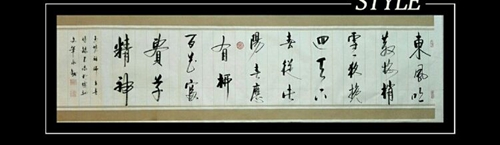 STYLE
東風吹
散梅梢
雪一夜挽
回天下
春從此
陽春應
有腳
百花富
貴草
精神